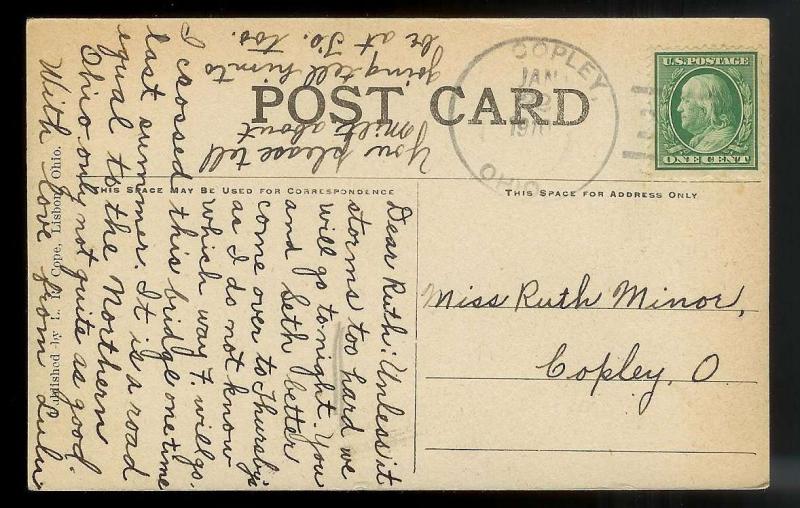 POST CARD
THIS SPACE MAY BE USED FOR CORRESPONDENCE
THIS SPACE FOR ADDRESS ONLY
U.S. POSTAGE
ONE CENT
COPLEY,
JAN
OHIO
Miss Ruth Minor,
Copley, O
Dear Ruth: Unless it
storms too hard we
will go tonight. You
and Seth better
come over to Thursbys
as I do not know
which way F. will go.
I crossed this bridge one time
last summer. It is a road
equal to the Northern
Ohio only not quite as good.
With love from Lulu
You please tell
milt about
going tell him to
be at Jo. too.
Published by L. R. Cope, Lisbon, Ohio.